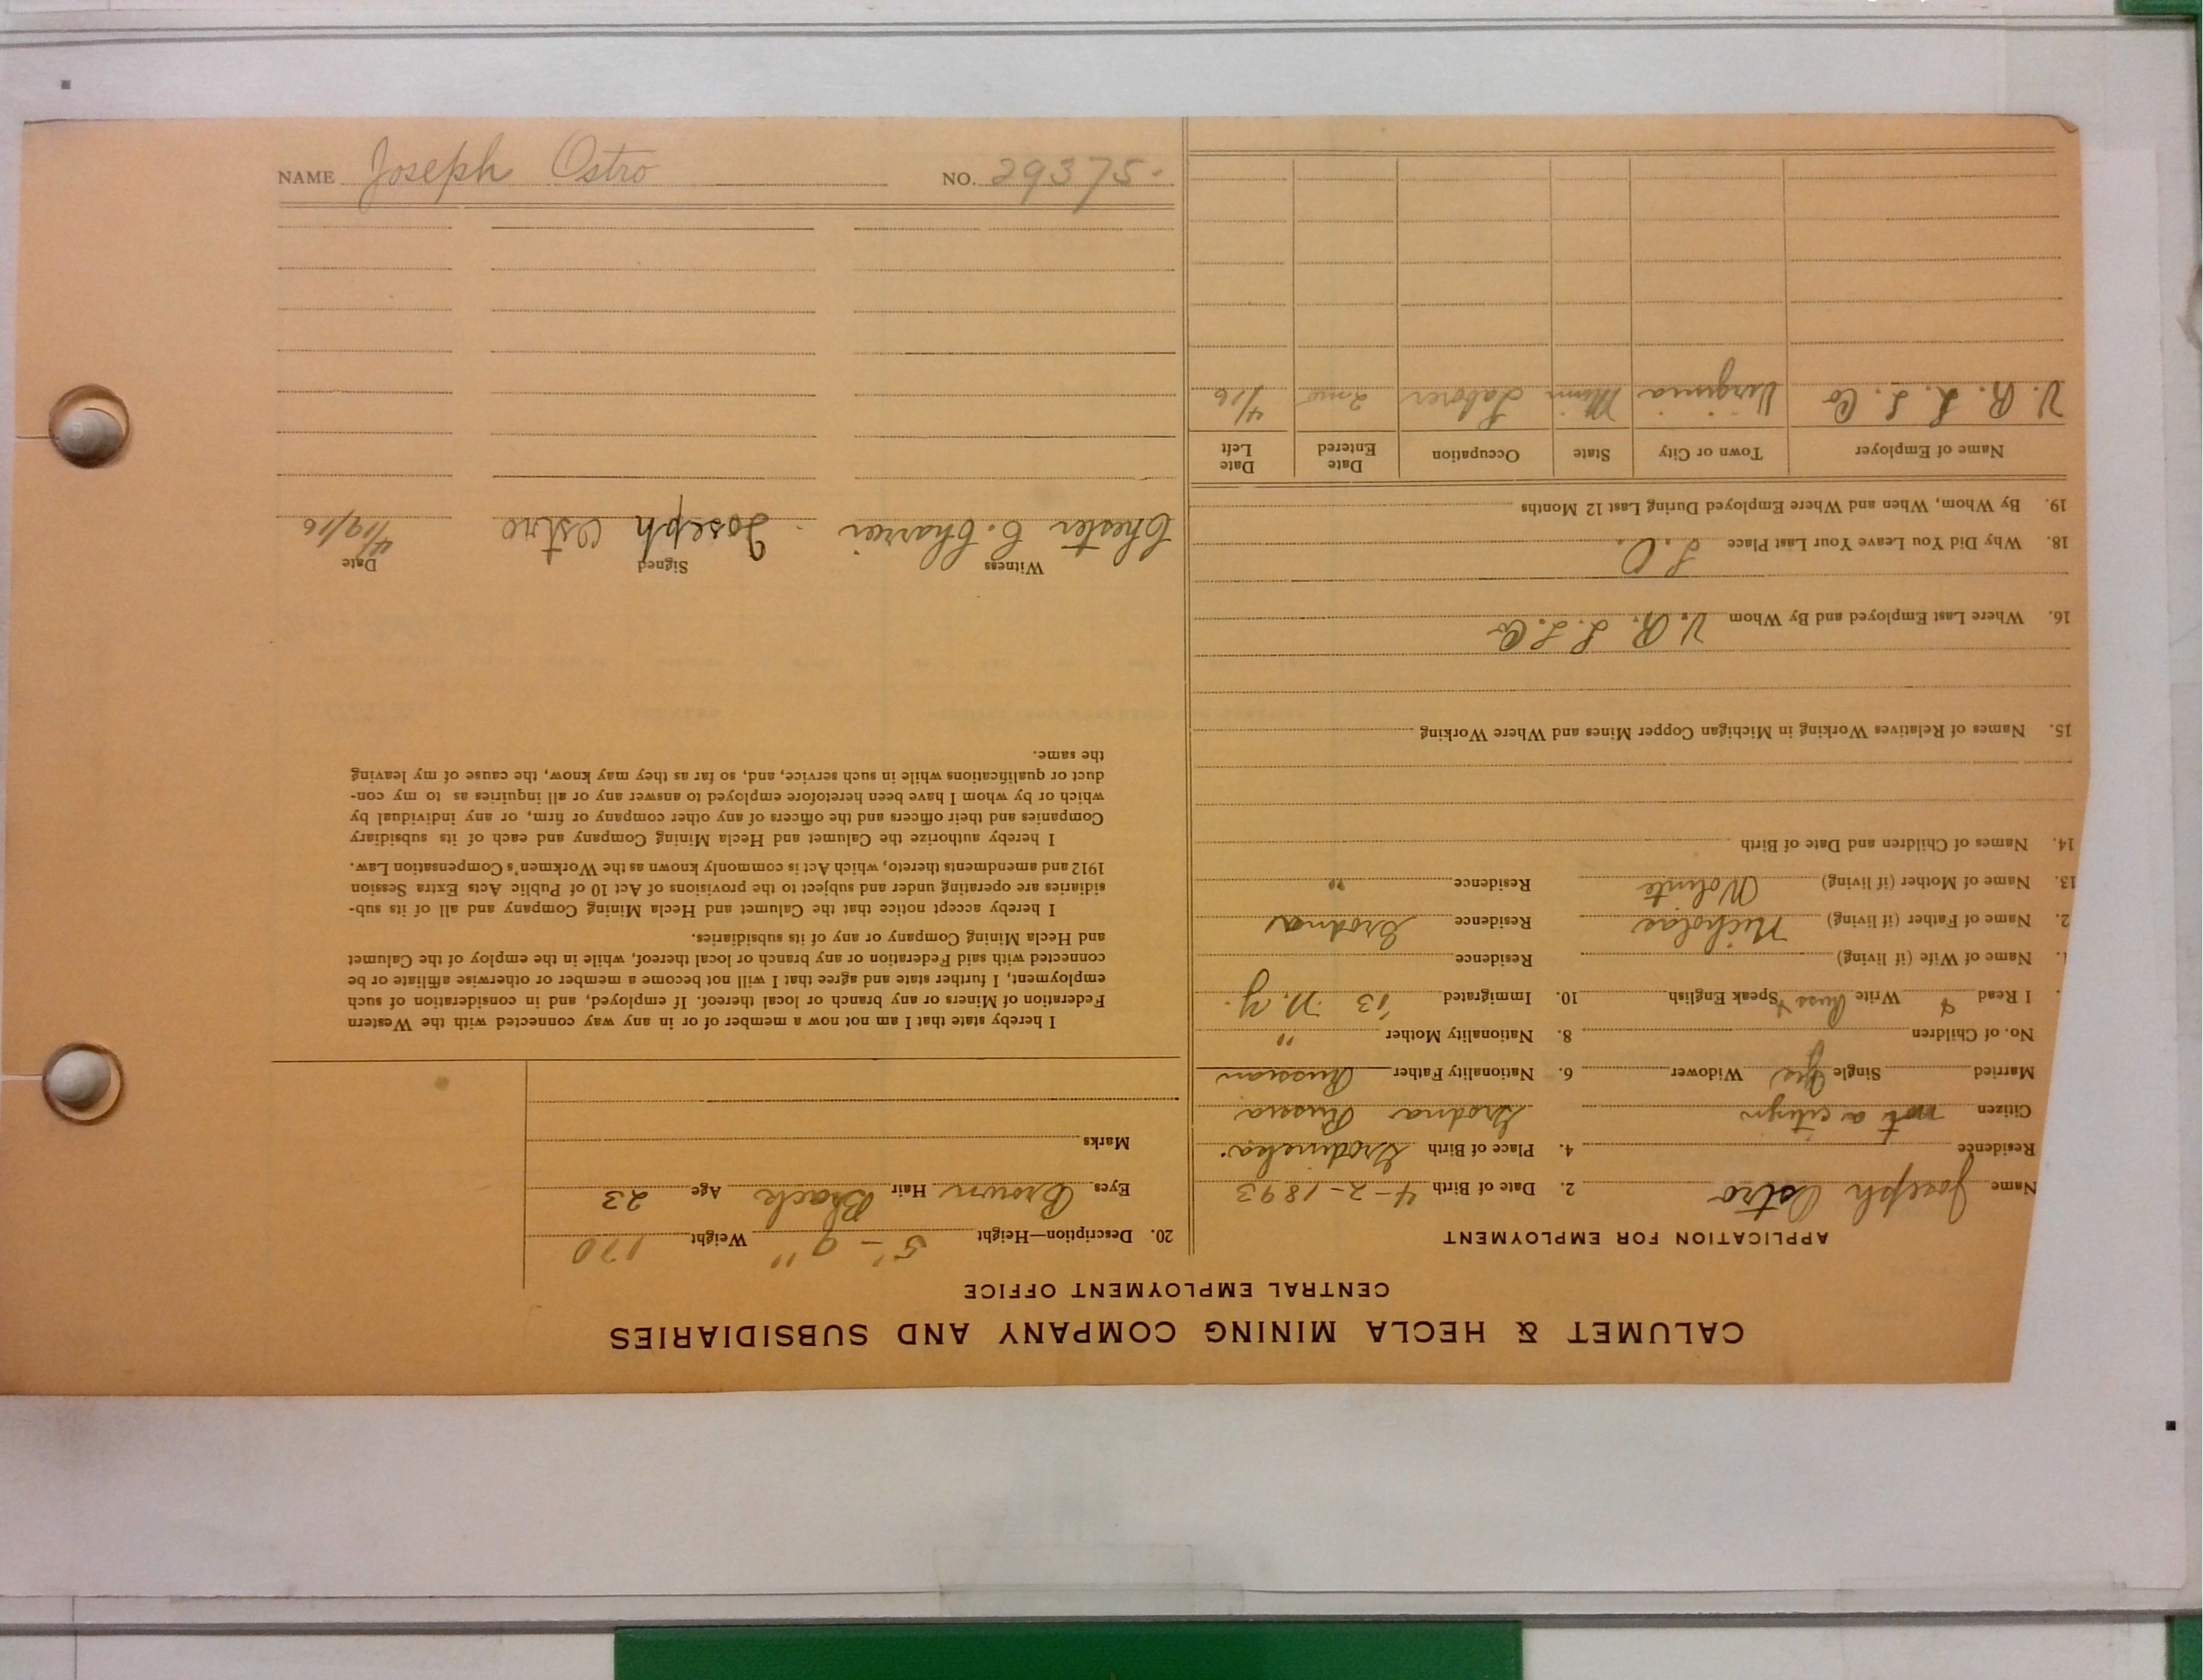 CALUMET & HECLA MINING COMPANY AND SUBSIDIARIES
CENTRAL EMPLOYMENT OFFICE
APPLICATION FOR EMPLOYMENT
Name Joseph Ostro 2. Date of Birth 4-2-1893
Residence 4. Place of Birth
Citizen not a citizen Grodna Russia
Married Single Yes Widower 6. Nationality Father Russian
No. of Children 8. Nationality Mother "
I Read & Write Russ Speak English 10. Immigrated '13 N.Y.
Name of Wife (if living) Residence
2. Name of Father (if living) Nicholas Residence Grodna
13. Name of Mother (if living) Residence "
14. Names of Children and Date of Birth
15. Names of Relatives Working in Michigan Copper Mines and Where Working
16. Where Last Employed and By Whom V. R. L. L. Co
18. Why Did You Leave Your Last Place
19. By Whom, When and Where Employed During Last 12 Months
Name of Employer Town or City State Occupation Date Entered Date Left
V. R. L. L. Co Virginia Minn Laborer 2 mo 4/16
20. Description—Height 5'-9" Weight 170
Eyes Brown Hair Black Age 23
Marks
I hereby state that I am not now a member of or in any way connected with the Western
Federation of Miners or any branch or local thereof. If employed, and in consideration of such
employment, I further state and agree that I will not become a member or otherwise affiliate or be
connected with said Federation or any branch or local thereof, while in the employ of the Calumet
and Hecla Mining Company or any of its subsidiaries.
I hereby accept notice that the Calumet and Hecla Mining Company and all of its sub-
sidiaries are operating under and subject to the provisions of Act 10 of Public Acts Extra Session
1912 and amendments thereto, which Act is commonly known as the Workmen's Compensation Law.
I hereby authorize the Calumet and Hecla Mining Company and each of its subsidiary
Companies and their officers and the officers of any other company or firm, or any individual by
which or by whom I have been heretofore employed to answer any or all inquiries as to my con-
duct or qualifications while in such service, and, so far as they may know, the cause of my leaving
the same.
Witness Signed Date
Chester C. Joseph Ostro 4/19/16
NAME Joseph Ostro NO. 29375.